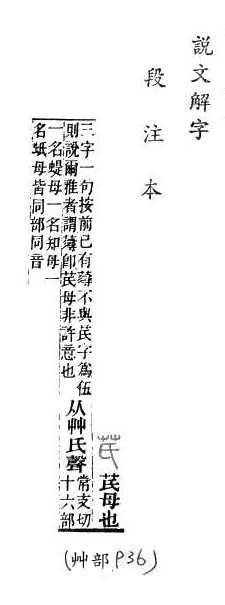 說文解字
段注本
芪 芪母也
三字一句按前已有䓘不與芪字爲伍
則說爾雅者謂䓘卽芪母非許意也
一名蝭母一名知母一
名蚔母皆同部同音
从艸氏聲
常支切
十六部
(艸部 P36)